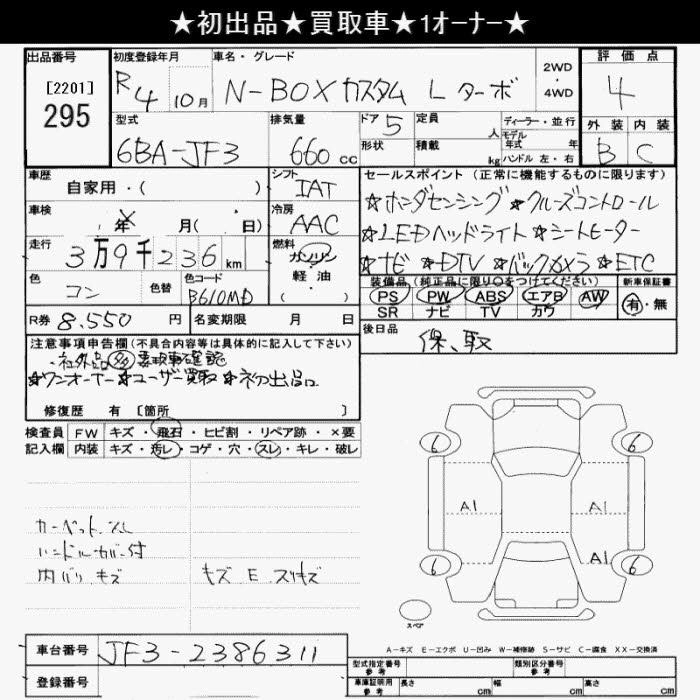 ★初出品★買取車★1オーナー★
出品番号 初度登録年月 車名・グレード 2WD・4WD 評価点
[2201]
295
R4 10月 N-BOX カスタム L ターボ 4
型式 排気量 ドア 5 定員 人 ディーラー・並行 外装 内装
6BA-JF3 660 cc 形状 積載 kg モデル年式 年 ハンドル 左・右 B C
車歴 自家用・( ) シフト IAT
セールスポイント (正常に機能するものに限ります)
車検 年 月( 日) 冷房 AAC
★ホンダセンシング ★クルーズコントロール
★LEDヘッドライト ★シートヒーター
★ナビ ★DTV ★バックカメラ ★ETC
走行 3万9千236km 燃料 ガソリン 軽・油 ( )
色 コン 色替 色コード B610MD
装備品 (純正品に限り○をつけてください) 新車保証書
PS PW ABS エアB AW 有・無
SR ナビ TV カワ
R券 8.550 円 名変期限 月 日
後日品 保、取
注意事項申告欄(不具合内容等は具体的に記入して下さい)
社外品多々要取車確認
★ワンオーナー★ユーザー買取★初出品
修復歴 有 [箇所 ]
検査員 FW キズ・飛石・ヒビ割・リペア跡・×要
記入欄 内装 キズ・汚レ・コゲ・穴・スレ・キレ・破レ
6 6
A1 A1
A1
6 6
カーペット
ハンドルカバー付
内バリ キズ キズ E スリキズ
スペア
A-キズ E-エクボ U-凹み W-補修跡 S-サビ C-腐食 XX-交換済
車台番号 JF3-2386311
登録番号
型式指定番号 参考 類別区分番号 参考
車庫証明用 参考 長さ cm 幅 cm 高さ cm